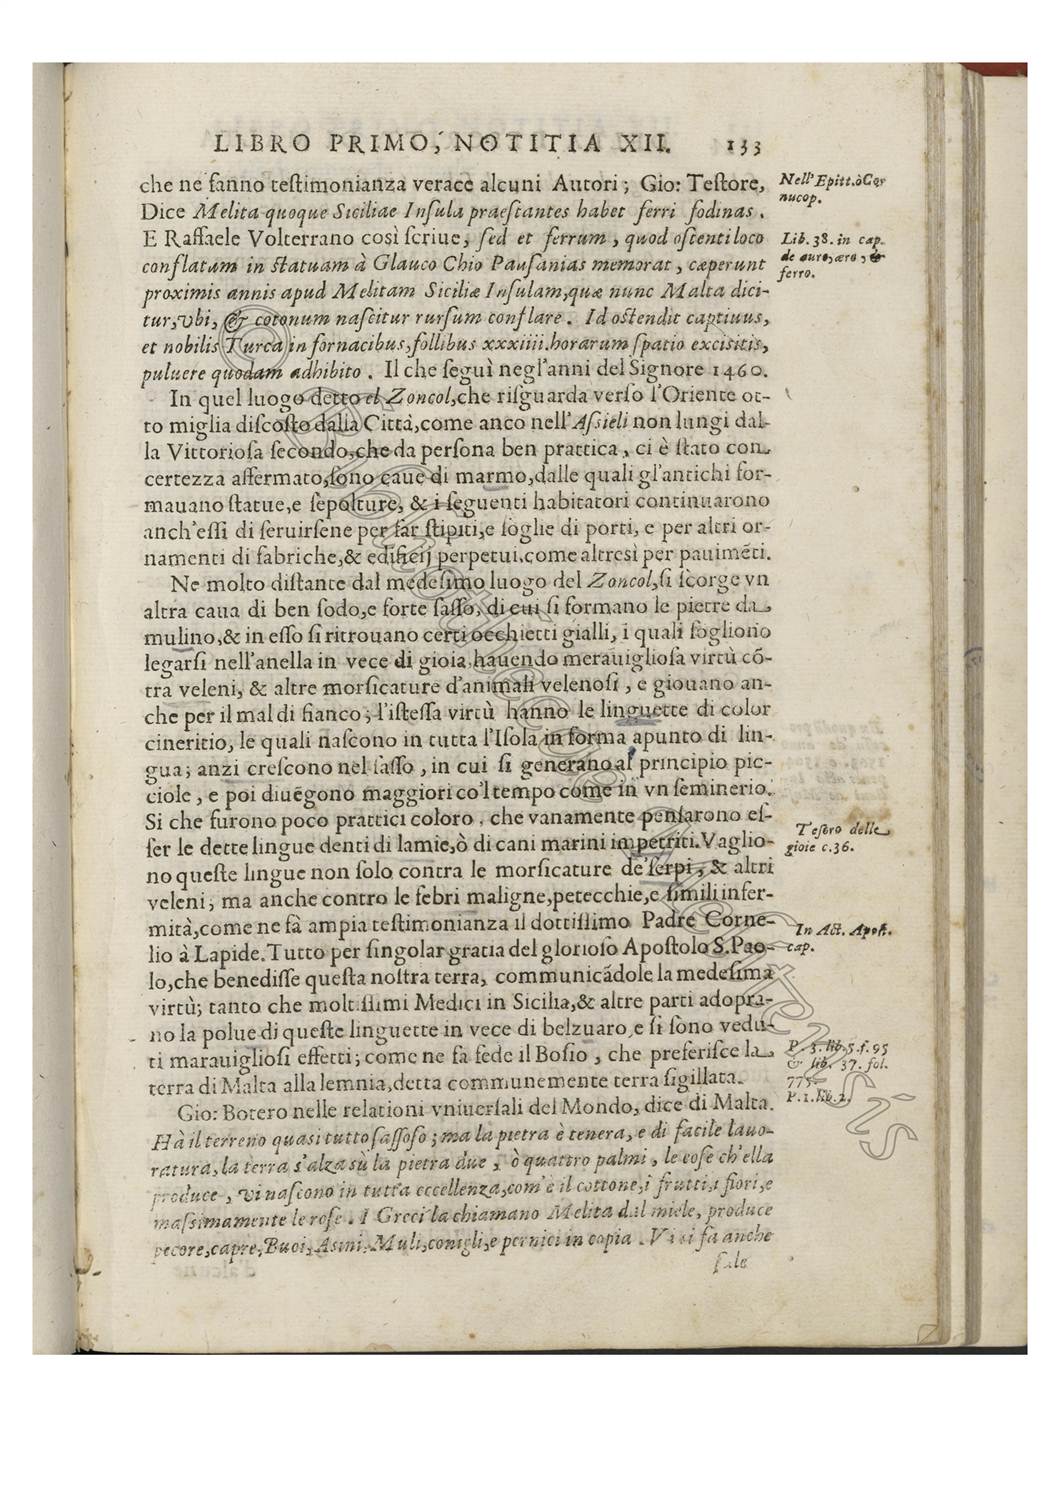 LIBRO PRIMO, NOTITIA XII. 133
che ne fanno teſtimonianza verace alcuni Autori; Gio: Teſtore,
Nell'Epitt. ò Cor
nucop.
Dice Melita quoque Siciliae Inſula praeſtantes habet ferri fodinas.
E Raffaele Volterrano così ſcriue, ſed et ferrum, quod oſtenti loco
Lib. 38. in cap.
de auro, aere, &
ferro.
conflatum in ſtatuam à Glauco Chio Pauſanias memorat, cæperunt
proximis annis apud Melitam Siciliæ Inſulam, quæ nunc Malta dici-
tur, vbi, & cotonum naſcitur rurſum conflare. Id oſtendit captiuus,
et nobilis Turca in fornacibus, follibus xxxiiii. horarum ſpatio excisitis,
puluere quodam adhibito. Il che ſeguì negl'anni del Signore 1460.
In quel luogo detto el Zoncol, che riſguarda verſo l'Oriente ot-
to miglia diſcoſto dalla Città, come anco nell'Aſsieli non lungi dal-
la Vittorioſa ſecondo, che da perſona ben prattica, ci è ſtato con
certezza affermato, ſono caue di marmo, dalle quali gl'antichi for-
mauano ſtatue, e ſepolture, & i ſeguenti habitatori continuarono
anch'eſſi di ſeruirſene per far ſtipiti, e ſoglie di porti, e per altri or-
namenti di fabriche, & edificij perpetui, come altresì per pauimẽti.
Ne molto diſtante dal medeſimo luogo del Zoncol, ſi ſcorge vn
altra caua di ben ſodo, e forte ſaſſo, di cui ſi formano le pietre da
mulino, & in eſſo ſi ritrouano certi occhietti gialli, i quali ſogliono
legarſi nell'anella in vece di gioia, hauendo merauiglioſa virtù cõ-
tra veleni, & altre morſicature d'animali velenoſi, e giouano an-
che per il mal di fianco; l'iſteſſa virtù hanno le linguette di color
cineritio, le quali naſcono in tutta l'Iſola in forma apunto di lin-
gua; anzi creſcono nel ſaſſo, in cui ſi generano al principio pic-
ciole, e poi diuẽgono maggiori co'l tempo come in vn ſeminerio.
Si che furono poco prattici coloro, che vanamente penſarono eſ-
Teſoro delle
gioie c. 36.
ſer le dette lingue denti di lamie, ò di cani marini impetriti. Vaglio-
no queſte lingue non ſolo contra le morſicature de' ſerpi, & altri
veleni; ma anche contro le febri maligne, petecchie, e ſimili infer-
mità, come ne fà ampia teſtimonianza il dottiſſimo Padre Corne-
In Act. Apoſt.
cap.
lio à Lapide. Tutto per ſingolar gratia del glorioſo Apoſtolo S. Pao-
lo, che benediſſe queſta noſtra terra, communicãdole la medeſima
virtù; tanto che moltiſſimi Medici in Sicilia, & altre parti adopra-
no la polue di queſte linguette in vece di belzuaro, e ſi ſono vedu-
ti marauiglioſi effetti; come ne fà fede il Boſio, che preferiſce la
P. 3. lib. 5. f. 95
& lib. 37. fol.
775.
terra di Malta alla lemnia, detta communemente terra ſigillata.
Gio: Botero nelle relationi vniuerſali del Mondo, dice di Malta.
P. 1. lib. 2.
Hà il terreno quaſi tutto ſaſſoſo; ma la pietra è tenera, e di facile lauo-
ratura, la terra s'alza sù la pietra due, ò quattro palmi, le coſe ch'ella
produce, vi naſcono in tutta eccellenza, com'è il cottone, i frutti, i fiori, e
maſsimamente le roſe. I Greci la chiamano Melita dal miele, produce
pecore, capre, Buoi, Asini, Muli, conigli, e pernici in copia. Vi si fa anche
ſale